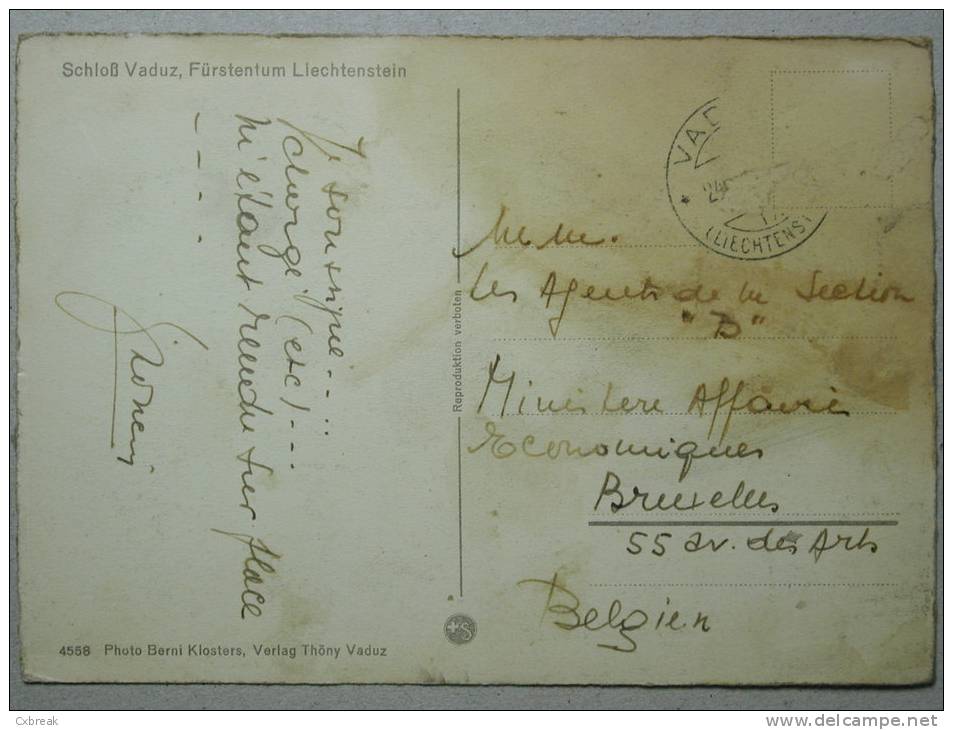 Schloß Vaduz, Fürstentum Liechtenstein
Je soussigné--..
chargé (etc)--..
m'étant rendu sur place
- - - .
VAD
24
(LIECHTENS
M.M.
Les Agents de la Section
"B"
Ministere Affaires
Economiques
Bruxelles
55 av. des Arts
Belgien
Reproduktion verboten
+S
4558 Photo Berni Klosters, Verlag Thöny Vaduz
Cxbreak
www.delcampe.net